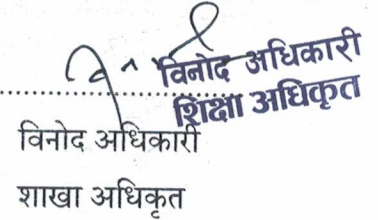 विनोद अधिकारी
शिक्षा अधिकृत
विनोद अधिकारी
शाखा अधिकृत